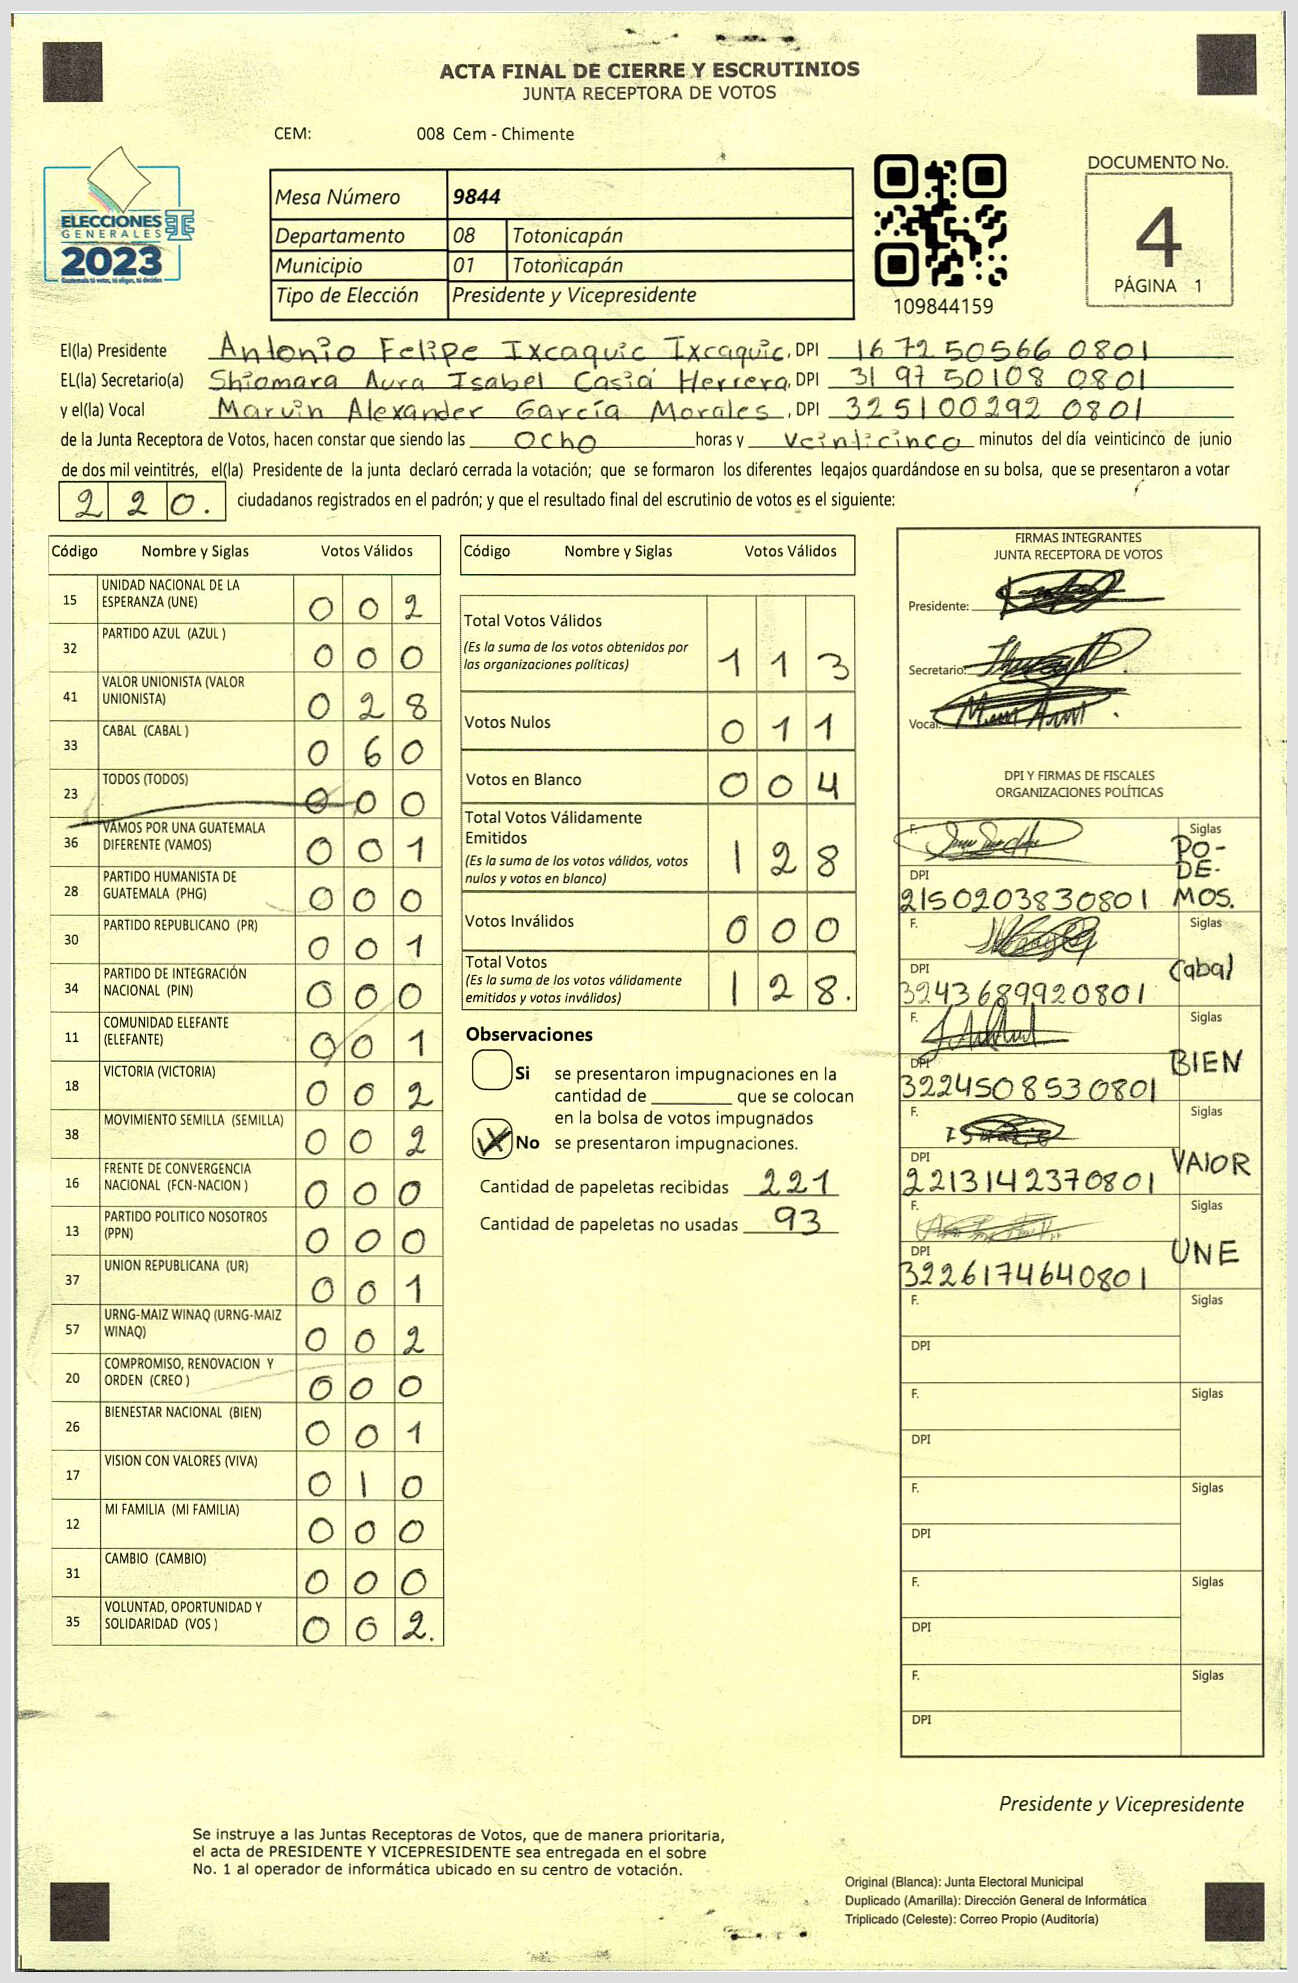 ACTA FINAL DE CIERRE Y ESCRUTINIOS
JUNTA RECEPTORA DE VOTOS
CEM: 008 Cem - Chimente
ELECCIONES
GENERALES
2023
Mesa Número 9844
Departamento 08 Totonicapán
Municipio 01 Totonicapán
Tipo de Elección Presidente y Vicepresidente
109844159
DOCUMENTO No.
4
PÁGINA 1
El(la) Presidente Antonio Felipe Ixcaquic Ixcaquic, DPI 16 72 50566 0801
EL(la) Secretario(a) Shiomara Aura Isabel Casia Herrera, DPI 31 97 50108 0801
y el(la) Vocal Marvin Alexander García Morales, DPI 325100292 0801
de la Junta Receptora de Votos, hacen constar que siendo las ocho horas y veinticinco minutos del día veinticinco de junio
de dos mil veintitrés, el(la) Presidente de la junta declaró cerrada la votación; que se formaron los diferentes legajos quardándose en su bolsa, que se presentaron a votar
2 2 0. ciudadanos registrados en el padrón; y que el resultado final del escrutinio de votos es el siguiente:
Código Nombre y Siglas Votos Válidos
15 UNIDAD NACIONAL DE LA ESPERANZA (UNE) 0 0 2
32 PARTIDO AZUL (AZUL ) 0 0 0
41 VALOR UNIONISTA (VALOR UNIONISTA) 0 2 8
33 CABAL (CABAL ) 0 6 0
23 TODOS (TODOS) 0 0 0
36 VAMOS POR UNA GUATEMALA DIFERENTE (VAMOS) 0 0 1
28 PARTIDO HUMANISTA DE GUATEMALA (PHG) 0 0 0
30 PARTIDO REPUBLICANO (PR) 0 0 1
34 PARTIDO DE INTEGRACIÓN NACIONAL (PIN) 0 0 0
11 COMUNIDAD ELEFANTE (ELEFANTE) 0 0 1
18 VICTORIA (VICTORIA) 0 0 2
38 MOVIMIENTO SEMILLA (SEMILLA) 0 0 2
16 FRENTE DE CONVERGENCIA NACIONAL (FCN-NACION ) 0 0 0
13 PARTIDO POLITICO NOSOTROS (PPN) 0 0 0
37 UNION REPUBLICANA (UR) 0 0 1
57 URNG-MAIZ WINAQ (URNG-MAIZ WINAQ) 0 0 2
20 COMPROMISO, RENOVACION Y ORDEN (CREO ) 0 0 0
26 BIENESTAR NACIONAL (BIEN) 0 0 1
17 VISION CON VALORES (VIVA) 0 1 0
12 MI FAMILIA (MI FAMILIA) 0 0 0
31 CAMBIO (CAMBIO) 0 0 0
35 VOLUNTAD, OPORTUNIDAD Y SOLIDARIDAD (VOS ) 0 0 2.
Código Nombre y Siglas Votos Válidos
Total Votos Válidos
(Es la suma de los votos obtenidos por
las organizaciones políticas) 1 1 3
Votos Nulos 0 1 1
Votos en Blanco 0 0 4
Total Votos Válidamente
Emitidos
(Es la suma de los votos válidos, votos
nulos y votos en blanco) 1 2 8
Votos Inválidos 0 0 0
Total Votos
(Es la suma de los votos válidamente
emitidos y votos inválidos) 1 2 8.
Observaciones
Si se presentaron impugnaciones en la
cantidad de ________ que se colocan
en la bolsa de votos impugnados
No se presentaron impugnaciones.
Cantidad de papeletas recibidas 221
Cantidad de papeletas no usadas 93
FIRMAS INTEGRANTES
JUNTA RECEPTORA DE VOTOS
Presidente:
Secretario:
Vocal:
DPI Y FIRMAS DE FISCALES
ORGANIZACIONES POLÍTICAS
F. Siglas
PO-
DE-
MOS.
DPI
2150203830801
F. Siglas
Cabal
DPI
3243689920801
F. Siglas
BIEN
DPI
3224508530801
F. Siglas
VAlOR
DPI
2213142370801
F. Siglas
UNE
DPI
3226174640801
F. Siglas
DPI
F. Siglas
DPI
F. Siglas
DPI
F. Siglas
DPI
F. Siglas
DPI
Presidente y Vicepresidente
Se instruye a las Juntas Receptoras de Votos, que de manera prioritaria,
el acta de PRESIDENTE Y VICEPRESIDENTE sea entregada en el sobre
No. 1 al operador de informática ubicado en su centro de votación.
Original (Blanca): Junta Electoral Municipal
Duplicado (Amarilla): Dirección General de Informática
Triplicado (Celeste): Correo Propio (Auditoría)